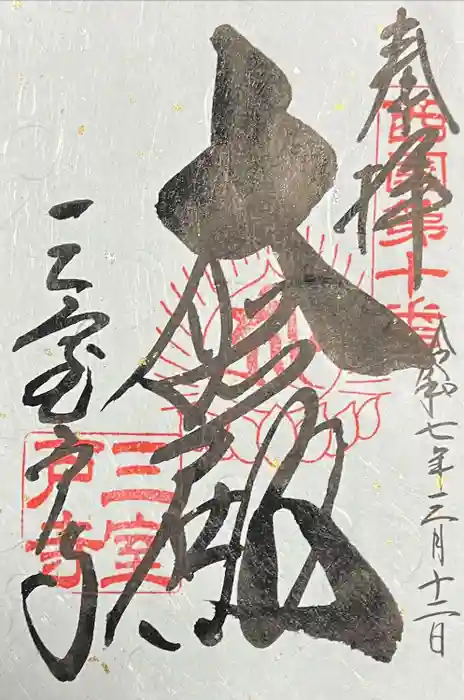 奉拝
西国第十番
令和七年三月十二日
大悲殿
三室戸寺
三室
戸寺